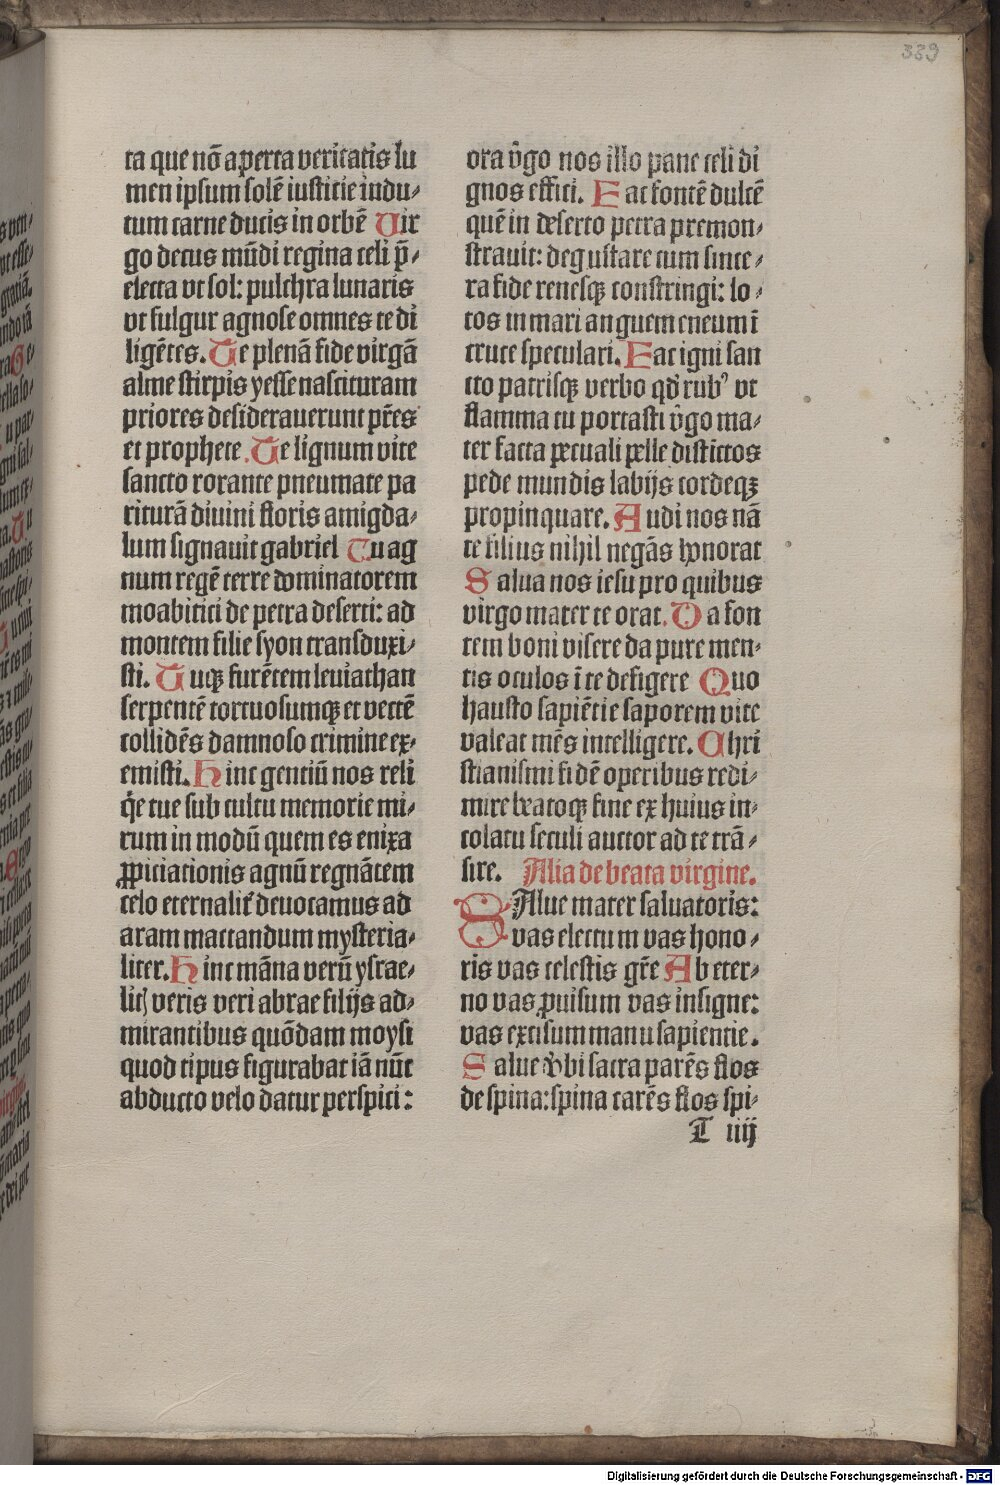 339
ta que nõ aperta veritatis lu
men ipsum solẽ iustitie indu⸗
tum carne ducis in orbẽ Uir
go decus mũdi regina celi p̃⸗
electa vt sol: pulchra lunaris
vt fulgur agnose omnes te di
ligẽtes. Te plenã fide virgã
alme stirpis yesse nascituram
priores desiderauerunt pr̃es
et prophete. Te lignum vite
sancto rorante pneumate pa
riturã diuini floris amigda⸗
lum signauit gabriel Tu ag
num regẽ terre dominatorem
moabitici de petra deserti: ad
montem filie syon transduxi⸗
sti. Tuqꝫ furẽtem leuiathan
serpentẽ tortuosumqꝫ et vectẽ
collidẽs damnoso crimine ex⸗
emisti. Hinc gentiũ nos reli
q̃e tue sub cultu memorie mi⸗
rum in modũ quem es enixa
ꝓpiciationis agnũ regnãtem
celo eternalit᷑ deuocamus ad
aram mactandum mysteria⸗
liter. Hinc mãna verũ ysrae⸗
litꝭ veris veri abrae filijs ad⸗
mirantibus quõdam moysi
quod tipus figurabat iã nũc
abducto velo datur perspici:
ora ṽgo nos illo pane celi di
gnos effici. Fac fontẽ dulcẽ
quẽ in deserto petra premon⸗
strauit: degustare cum since⸗
ra fide renesqꝫ constringi: lo⸗
tos in mari anguem eneum ĩ
cruce speculari. Fac igni san
cto patrisqꝫ verbo qd̾ rubꝰ vt
flamma tu portasti ṽgo ma⸗
ter facta pecuali pelle distĩctos
pede mundis labijs cordeqꝫ
propinquare. Audi nos nã
te filius nihil negãs honorat
Salua nos iesu pro quibus
virgo mater te orat. Da fon
tem boni visere da pure men⸗
tis oculos ĩ te defigere Quo
hausto sapiẽtie saporem vite
valeat mẽs intelligere. Chri
stianismi fidẽ operibus redi⸗
mire beatoqꝫ fine ex huius in⸗
colatu seculi auctor ad te trã⸗
sire. Alia de beata virgine.
SAlue mater saluatoris:
vas electum vas hono⸗
ris vas celestis gr̃e Ab eter⸗
no vas ꝓuisum vas insigne:
vas excisum manu sapientie.
Salue v̾bi sacra parẽs flos
de spina: spina carẽs flos spi⸗
T iiij
Digitalisierung gefördert durch die Deutsche Forschungsgemeinschaft - DFG